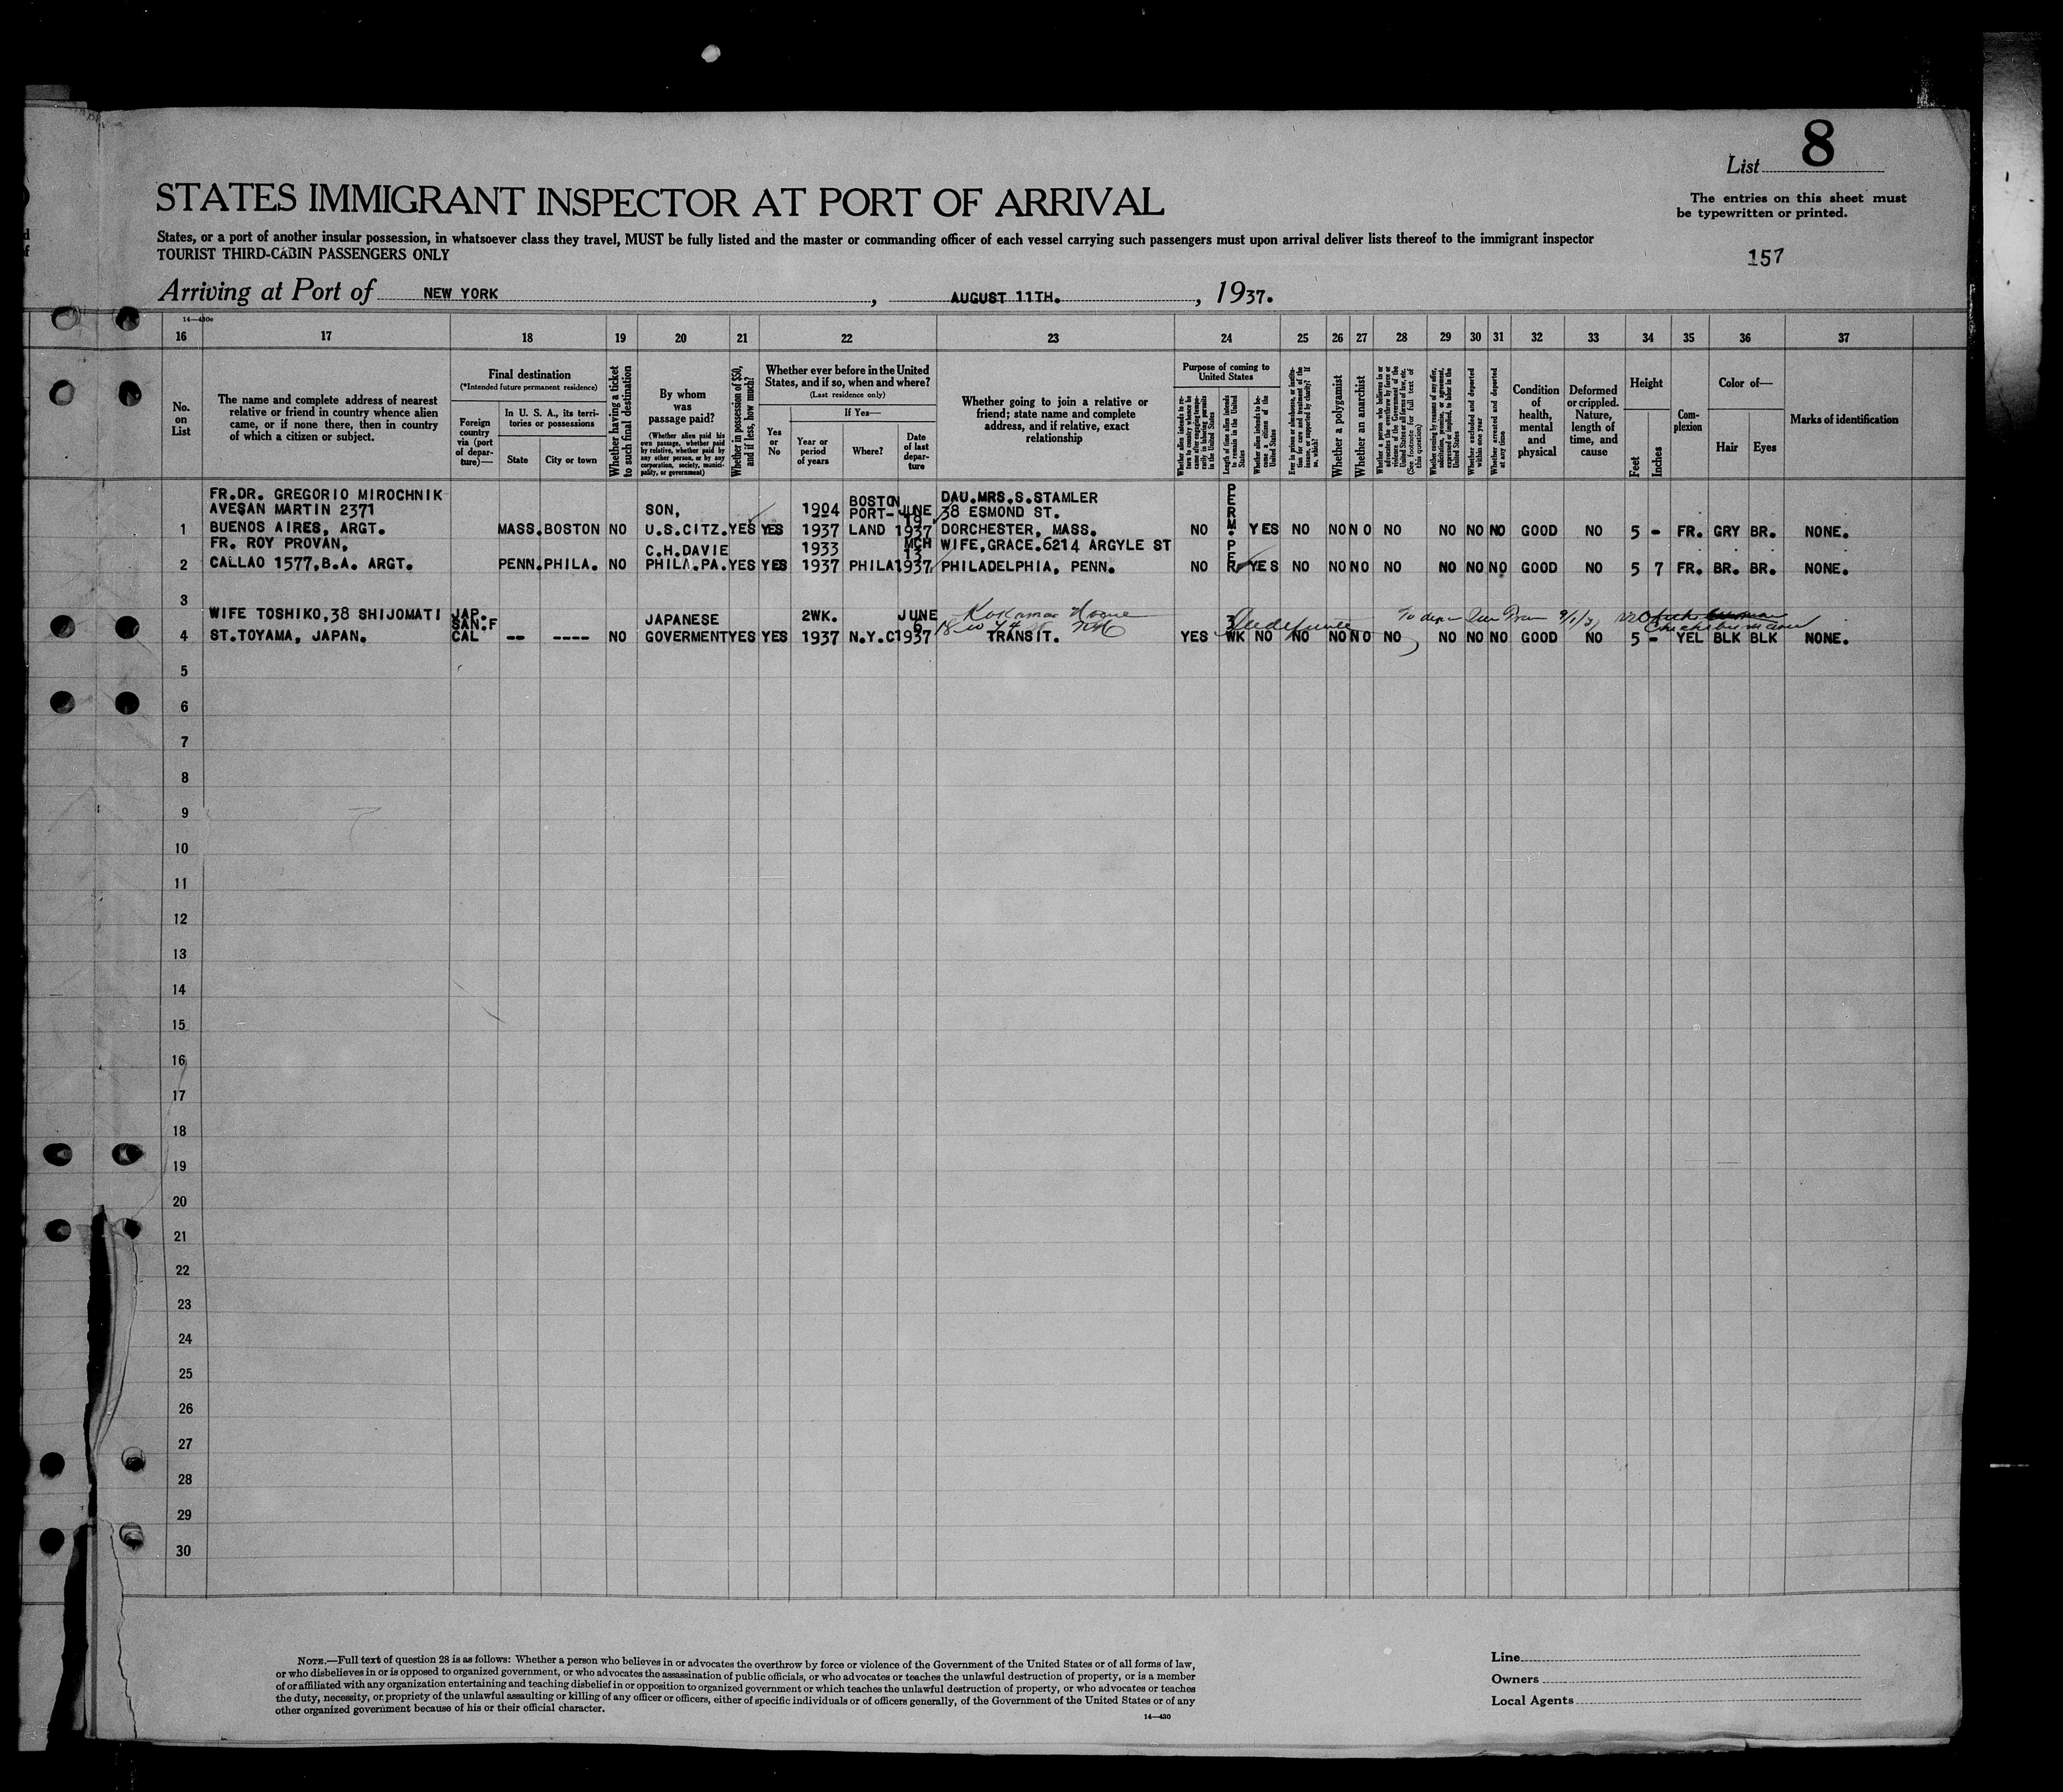 List 8
STATES IMMIGRANT INSPECTOR AT PORT OF ARRIVAL
The entries on this sheet must
be typewritten or printed.
States, or a port of another insular possession, in whatsoever class they travel, MUST be fully listed and the master or commanding officer of each vessel carrying such passengers must upon arrival deliver lists thereof to the immigrant inspector
TOURIST THIRD-CABIN PASSENGERS ONLY
157
Arriving at Port of NEW YORK, AUGUST 11TH., 1937.
14—430c
16 17 18 19 20 21 22 23 24 25 26 27 28 29 30 31 32 33 34 35 36 37
No. on List
The name and complete address of nearest relative or friend in country whence alien came, or if none there, then in country of which a citizen or subject.
Final destination
(*Intended future permanent residence)
Foreign country via (port of departure)—
In U. S. A., its territories or possessions
State
City or town
Whether having a ticket to such final destination
By whom was passage paid?
(Whether alien paid his own passage, whether paid by relative, whether paid by any other person, or by any corporation, society, municipality, or government)
Whether in possession of $50, and if less, how much?
Whether ever before in the United States, and if so, when and where?
(Last residence only)
Yes or No
If Yes—
Year or period of years
Where?
Date of last departure
Whether going to join a relative or friend; state name and complete address, and if relative, exact relationship
Purpose of coming to United States
Length of time alien intends to remain in the United States
Whether alien intends to become a citizen of the United States
Whether a polygamist
Whether an anarchist
(See footnote for full text of this question)
Whether excluded and deported within one year
Whether arrested and deported at any time
Condition of health, mental and physical
Deformed or crippled. Nature, length of time, and cause
Height
Feet
Inches
Complexion
Color of—
Hair
Eyes
Marks of identification
FR.DR. GREGORIO MIROCHNIK
AVESAN MARTIN 2371 SON, 1904 BOSTON PORT- JUNE 19 DAU.MRS.S.STAMLER 38 ESMOND ST. PERM.
1 BUENOS AIRES, ARGT. MASS. BOSTON NO U.S.CITZ. YES YES 1937 LAND 1937 DORCHESTER, MASS. NO YES NO NO NO NO NO NO NO GOOD NO 5 - FR. GRY BR. NONE.
FR. ROY PROVAN, C.H.DAVIE 1933 MCH 13 WIFE,GRACE.6214 ARGYLE ST PER.
2 CALLAO 1577,B.A. ARGT. PENN. PHILA. NO PHILA.PA. YES YES 1937 PHILA 1937 PHILADELPHIA, PENN. NO YES NO NO NO NO NO NO NO GOOD NO 5 7 FR. BR. BR. NONE.
3
WIFE TOSHIKO,38 SHIJOMATI JAP. SAN.F JAPANESE 2WK. JUNE 6 3
4 ST.TOYAMA, JAPAN. CAL -- ---- NO GOVERMENT YES YES 1937 N.Y.C 1937 TRANSIT. YES WK NO NO NO NO NO NO NO NO GOOD NO 5 - YEL BLK BLK NONE.
5
6
7
8
9
10
11
12
13
14
15
16
17
18
19
20
21
22
23
24
25
26
27
28
29
30
NOTE.—Full text of question 28 is as follows: Whether a person who believes in or advocates the overthrow by force or violence of the Government of the United States or of all forms of law,
or who disbelieves in or is opposed to organized government, or who advocates the assassination of public officials, or who advocates or teaches the unlawful destruction of property, or is a member
of or affiliated with any organization entertaining and teaching disbelief in or opposition to organized government or which teaches the unlawful destruction of property, or who advocates or teaches
the duty, necessity, or propriety of the unlawful assaulting or killing of any officer or officers, either of specific individuals or of officers generally, of the Government of the United States or of any
other organized government because of his or their official character.
14—430
Line
Owners
Local Agents